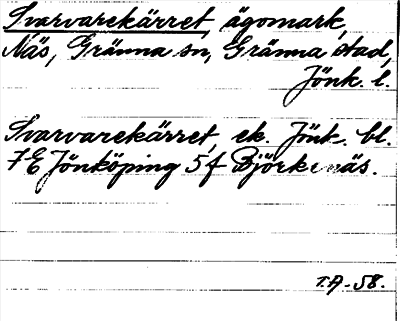 Svarvarekärret, ägomark,
Näs, Gränna sn, Gränna stad,
Jönk. l.
Svarvarekärret, ek. Jönk. bl.
7E Jönköping 5f Björkenäs.
T.A.-58.